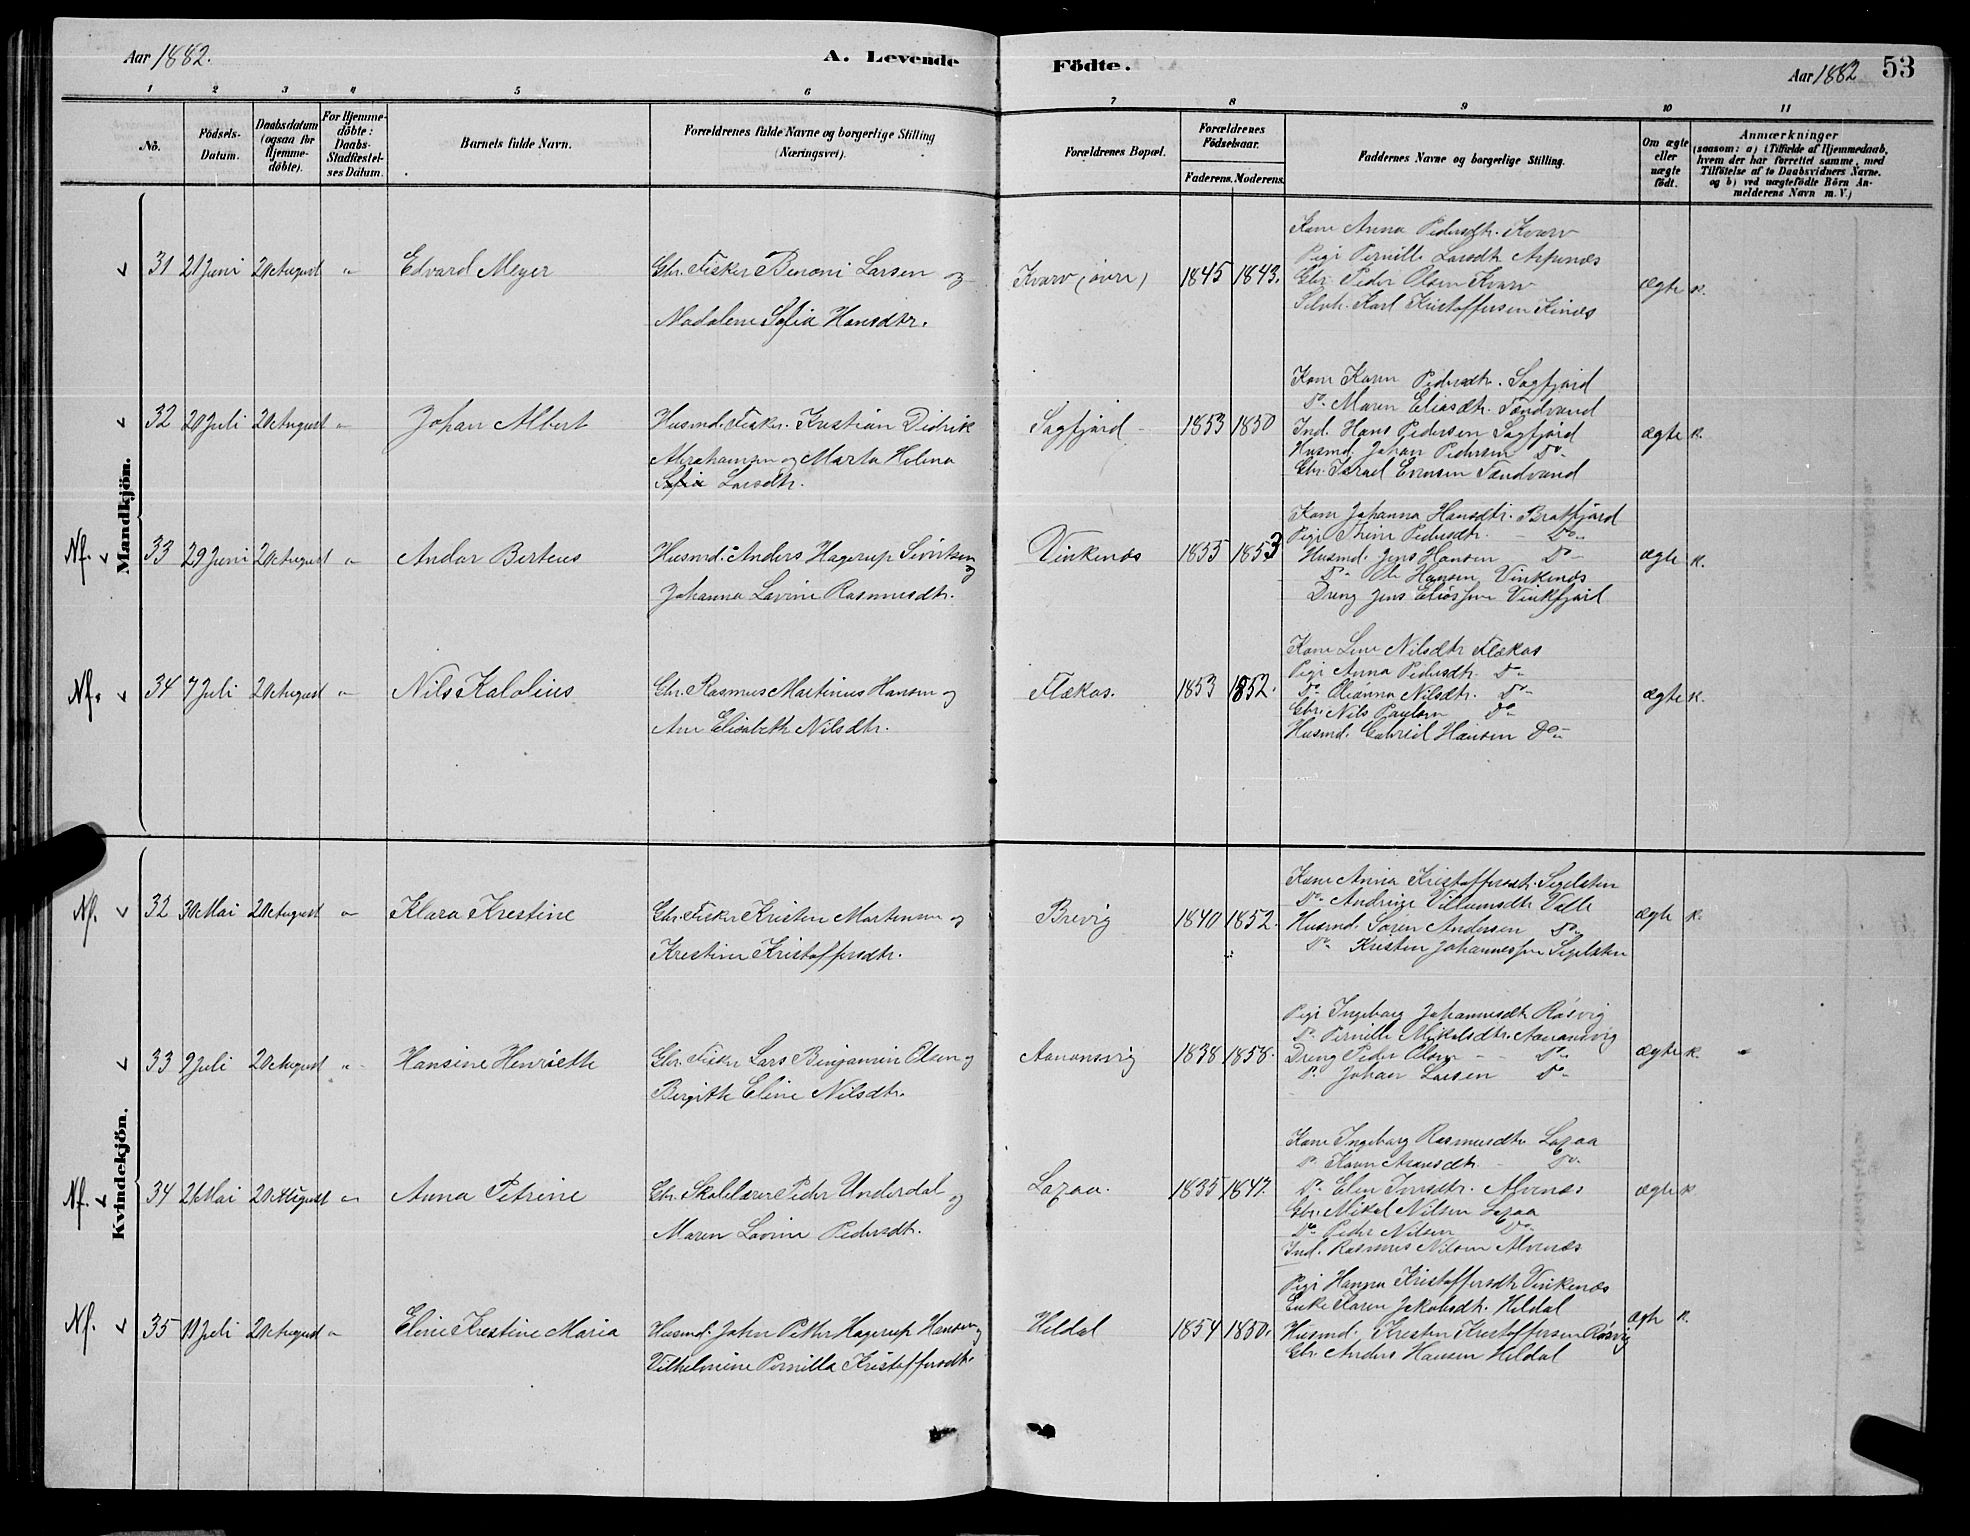 Aar 1882.
A. Levende Födte.
Aar 1882
53
1 2 3 4 5 6 7 8 9 10 11
No.
Födsels-Datum.
Daabsdatum (ogsaa for Hjemme-döbte).
For Hjemme-döbte: Daabs-Stadfæstel-ses Datum.
Barnets fulde Navn.
Forældrenes fulde Navne og borgerlige Stilling (Næringsvei).
Forældrenes Bopæl.
Forældrenes Födselsaar.
Faderens. Moderens.
Faddernes Navne og borgerlige Stilling.
Om ægte eller uægte födt.
Anmærkninger
(saasom: a) i Tilfælde af Hjemmedaab,
hvem der har forrettet samme, med
Tilföielse af to Daabsvidners Navne.
og b) ved uægtefödte Börn An-
melderens Navn m. V.)
Mandkjön.
31 21 Juni 20 August " Edvard Meyer
Gbr. Fisker Benoni Larsen og
Madalene Sofia Hansdtr.
Kvarv (övre) 1845 1843.
Kone Anna Pedersdtr. Kvarv
Pige Pernille Larsdtr
Gbr. Peder Olsen Kvarv
Selvh. Karl Kristoffersen Finæs
ægte k.
32 20 Juli 20 August " Johan Albert
Husmd. Fisker. Kristian Didrik
Abrahamsen og Marta Helena
Sofia Larsdtr.
Sagfjord 1853 1850
Kone Karen Pedersdtr. Sagfjord
Do. Maren Eliasdtr. Tendvand
Ind. Hans Pedersen Sagfjord
Husmd. Johan Pedersen Do.
Gbr. Israel Evensen Tendvand
ægte k.
Nf. 33 29 Juni 20 August " Andor Berteus
Husmd. Anders Hagerup Sivertsen og
Johanna Lavine Rasmusdtr.
Vinkenæs 1855 1853
Kone Johanna Hansdtr. Bratfjord
Pige Trine Pedersdtr. Do.
Husmd. Jens Hansen Do
Do. Ole Hansen Vinkenæs
Dreng Jens Eliassen Vinkfjord
ægte k.
Nf. 34 7 Juli 20 August " Nils Kalolius
Gbr. Rasmus Martinus Hansen og
Ane Elisabeth Nilsdtr.
Flækos. 1853 1852.
Kone Line Nilsdtr Flækos
Pige Anna Pedersdtr. Do
Do. Olianna Nilsdtr. Do
Gbr. Nils Paulsen Do
Husmd. Gabriel Hansen Do
ægte k.
Kvindekjön.
Nf. 32 30 Mai 20 August " Klara Krestine
Gbr. Fisker Kristen Martensen og
Krestine Kristoffersdtr.
Brevig 1840 1852.
Kone Anna Kristoffersdtr.
Do. Villumsdtr Valle
Husmd. Sören Andersen Do
Do. Kristen Johannessen
ægte k.
33 9 Juli 20 August " Hansine Henriette
Gbr. Fisker Lars Benjamin Olsen og
Birgitte Eline Nilsdtr.
Aanonsvig 1838 1858.
Pige Ingeborg Johannesdtr Rösvig
Do. Pernille Mikelsdtr. Aanonsvig
Dreng Peder Olsen Do
Do. Johan Larsen Do
ægte k.
Nf. 34 21 Mai 20 August " Anna Petrine
Gbr. Skolelærer Peder Underdal og
Maren Lovine Pedersdtr.
Laxaa. 1835 1847.
Kone Ingeborg Rasmusdtr Laxaa
Do. Karen Do
Do. Elen Alvenæs
Gbr. Mikal Nilsen Laxaa
Do. Peder Nilsen Do
Ind. Rasmus Nilsen Alvenæs
ægte k.
Nf. 35 11 Juli 20 August " Eline Krestine Maria
Husmd. John Petter Hagerup Hansen og
Vilhelmine Pernilla Kristoffersdtr.
Heldal 1854 1850.
Pige Hanna Kristoffersdtr Vinkenæs
Enke Karen Jakobsdtr. Heldal
Husmd. Kresten Kristoffersen Rösvig
Gbr. Anders Hansen Heldal
ægte k.